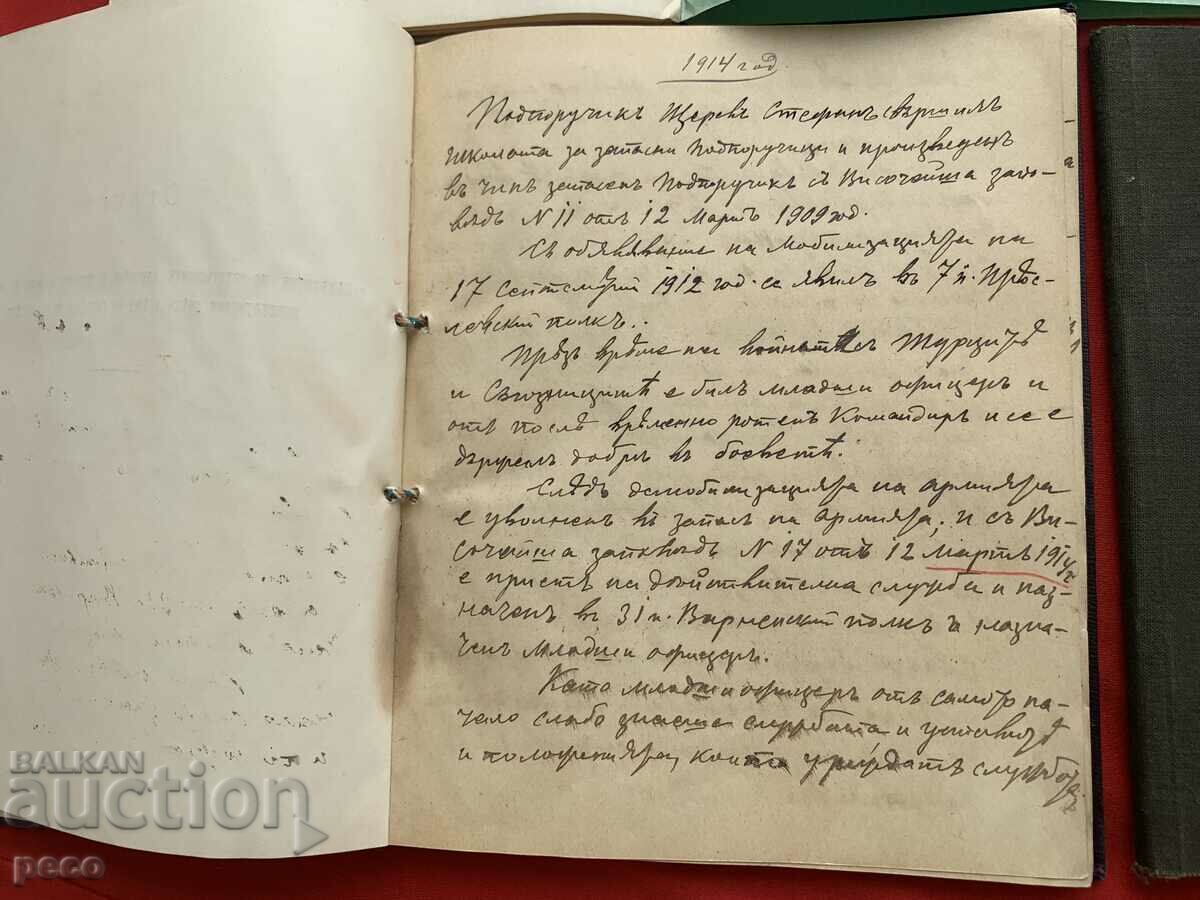 1914 год.
Подпоручикъ Щеревъ Стефанъ свършилъ
школата за запасни подпоручици и произведенъ
въ чинъ запасенъ Подпоручикъ съ Височайша запо-
ведь N 11 отъ 12 Мартъ 1909 год.
Съ обявявание на мобилизацията на
17 Септемврий 1912 год. се явилъ въ 7 п. Прѣс-
лавский полкъ..
Прѣзъ врѣме на войната съ Турцитѣ
и Съюзницитѣ е билъ младши офицеръ и
отъ послѣ врѣменно ротенъ Командиръ и се е
държалъ добрѣ въ боеветѣ.
Слѣдъ демобилизацията на армията
е уволненъ въ запаса на армията, и съ Ви-
сочайша заповѣдь N 17 отъ 12 мартъ 1914 г.
е приетъ на действителна служба и наз-
наченъ въ 31 п. Варненский полкъ за назна-
ченъ младши офицеръ.
Като младши офицеръ отъ само на-
чало слабо знаеше службата и уставитѣ
и положенията, които уреждатъ службата
BALKAN
auction
peco